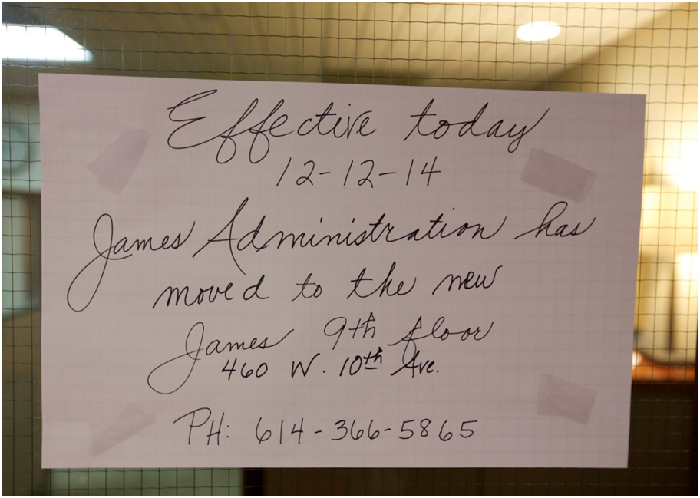 Effective today
12-12-14
James Administration has
moved to the new
James 9th floor
460 W. 10th Ave.
PH: 614-366-5865